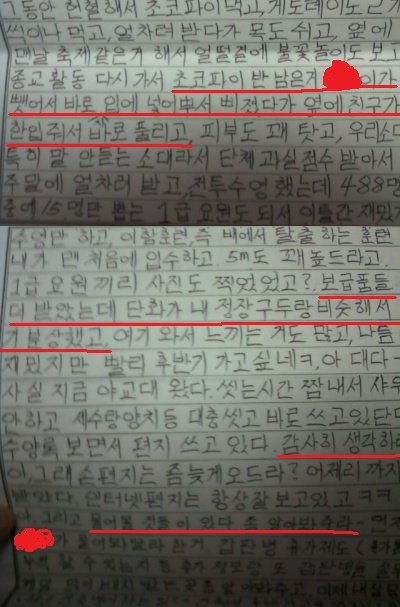 그동안 헌혈해서 초코파이먹고, 게토레이도
씩이나 먹고, 얼차려 받다가 목도 쉬고, 옆에
맨날 축제같은거 해서 얼떨결에 불꽃놀이도 보고
종교활동 다시가서 초코파이 반 남은거 이가
뺏어서 바로 입에 넣어 삐졌다가 옆에 친구가
한입줘서 바로 풀리고, 피부도 꽤 탓고, 우리소대
특히 말 안듣는 소대라서 단체 과실점수 받아서
주말에 얼차려 받고, 전투수영 했는데 488명
중에 15명만 뽑는 1급 요원도 되서 이틀간 재밌
수영만 하고, 이함훈련, 즉 배에서 탈출하는 훈련
내가 맨 처음에 입수하고 5m도 꽤 높드라고.
1급 요원끼리 사진도 찍었었고? 보급품들
더 받았는데 단화가 내 정장구두랑 비슷해서
기분상했고, 여기 와서 느끼는 거도 많고, 나름
재밌지만 빨리 후반기 가고싶네ㅋ, 아 대다
사실 지금 야교대 왔다. 씻는시간 짬내서 샤워
아하고 세수랑양치등 대충씻고 바로 쓰고있단다
수양록 보면서 편지 쓰고 있다. 감사히 생각하
아, 그래 손편지는 좀늦게오드라? 어제리 까지
받았다. 인터넷편지는 항상잘보고있고 ㅋㅋ
아 그리고 물어볼 것들이 있다 좀 알아봐주라
물어봐달라 한거
알아봐주고, 이제 내일